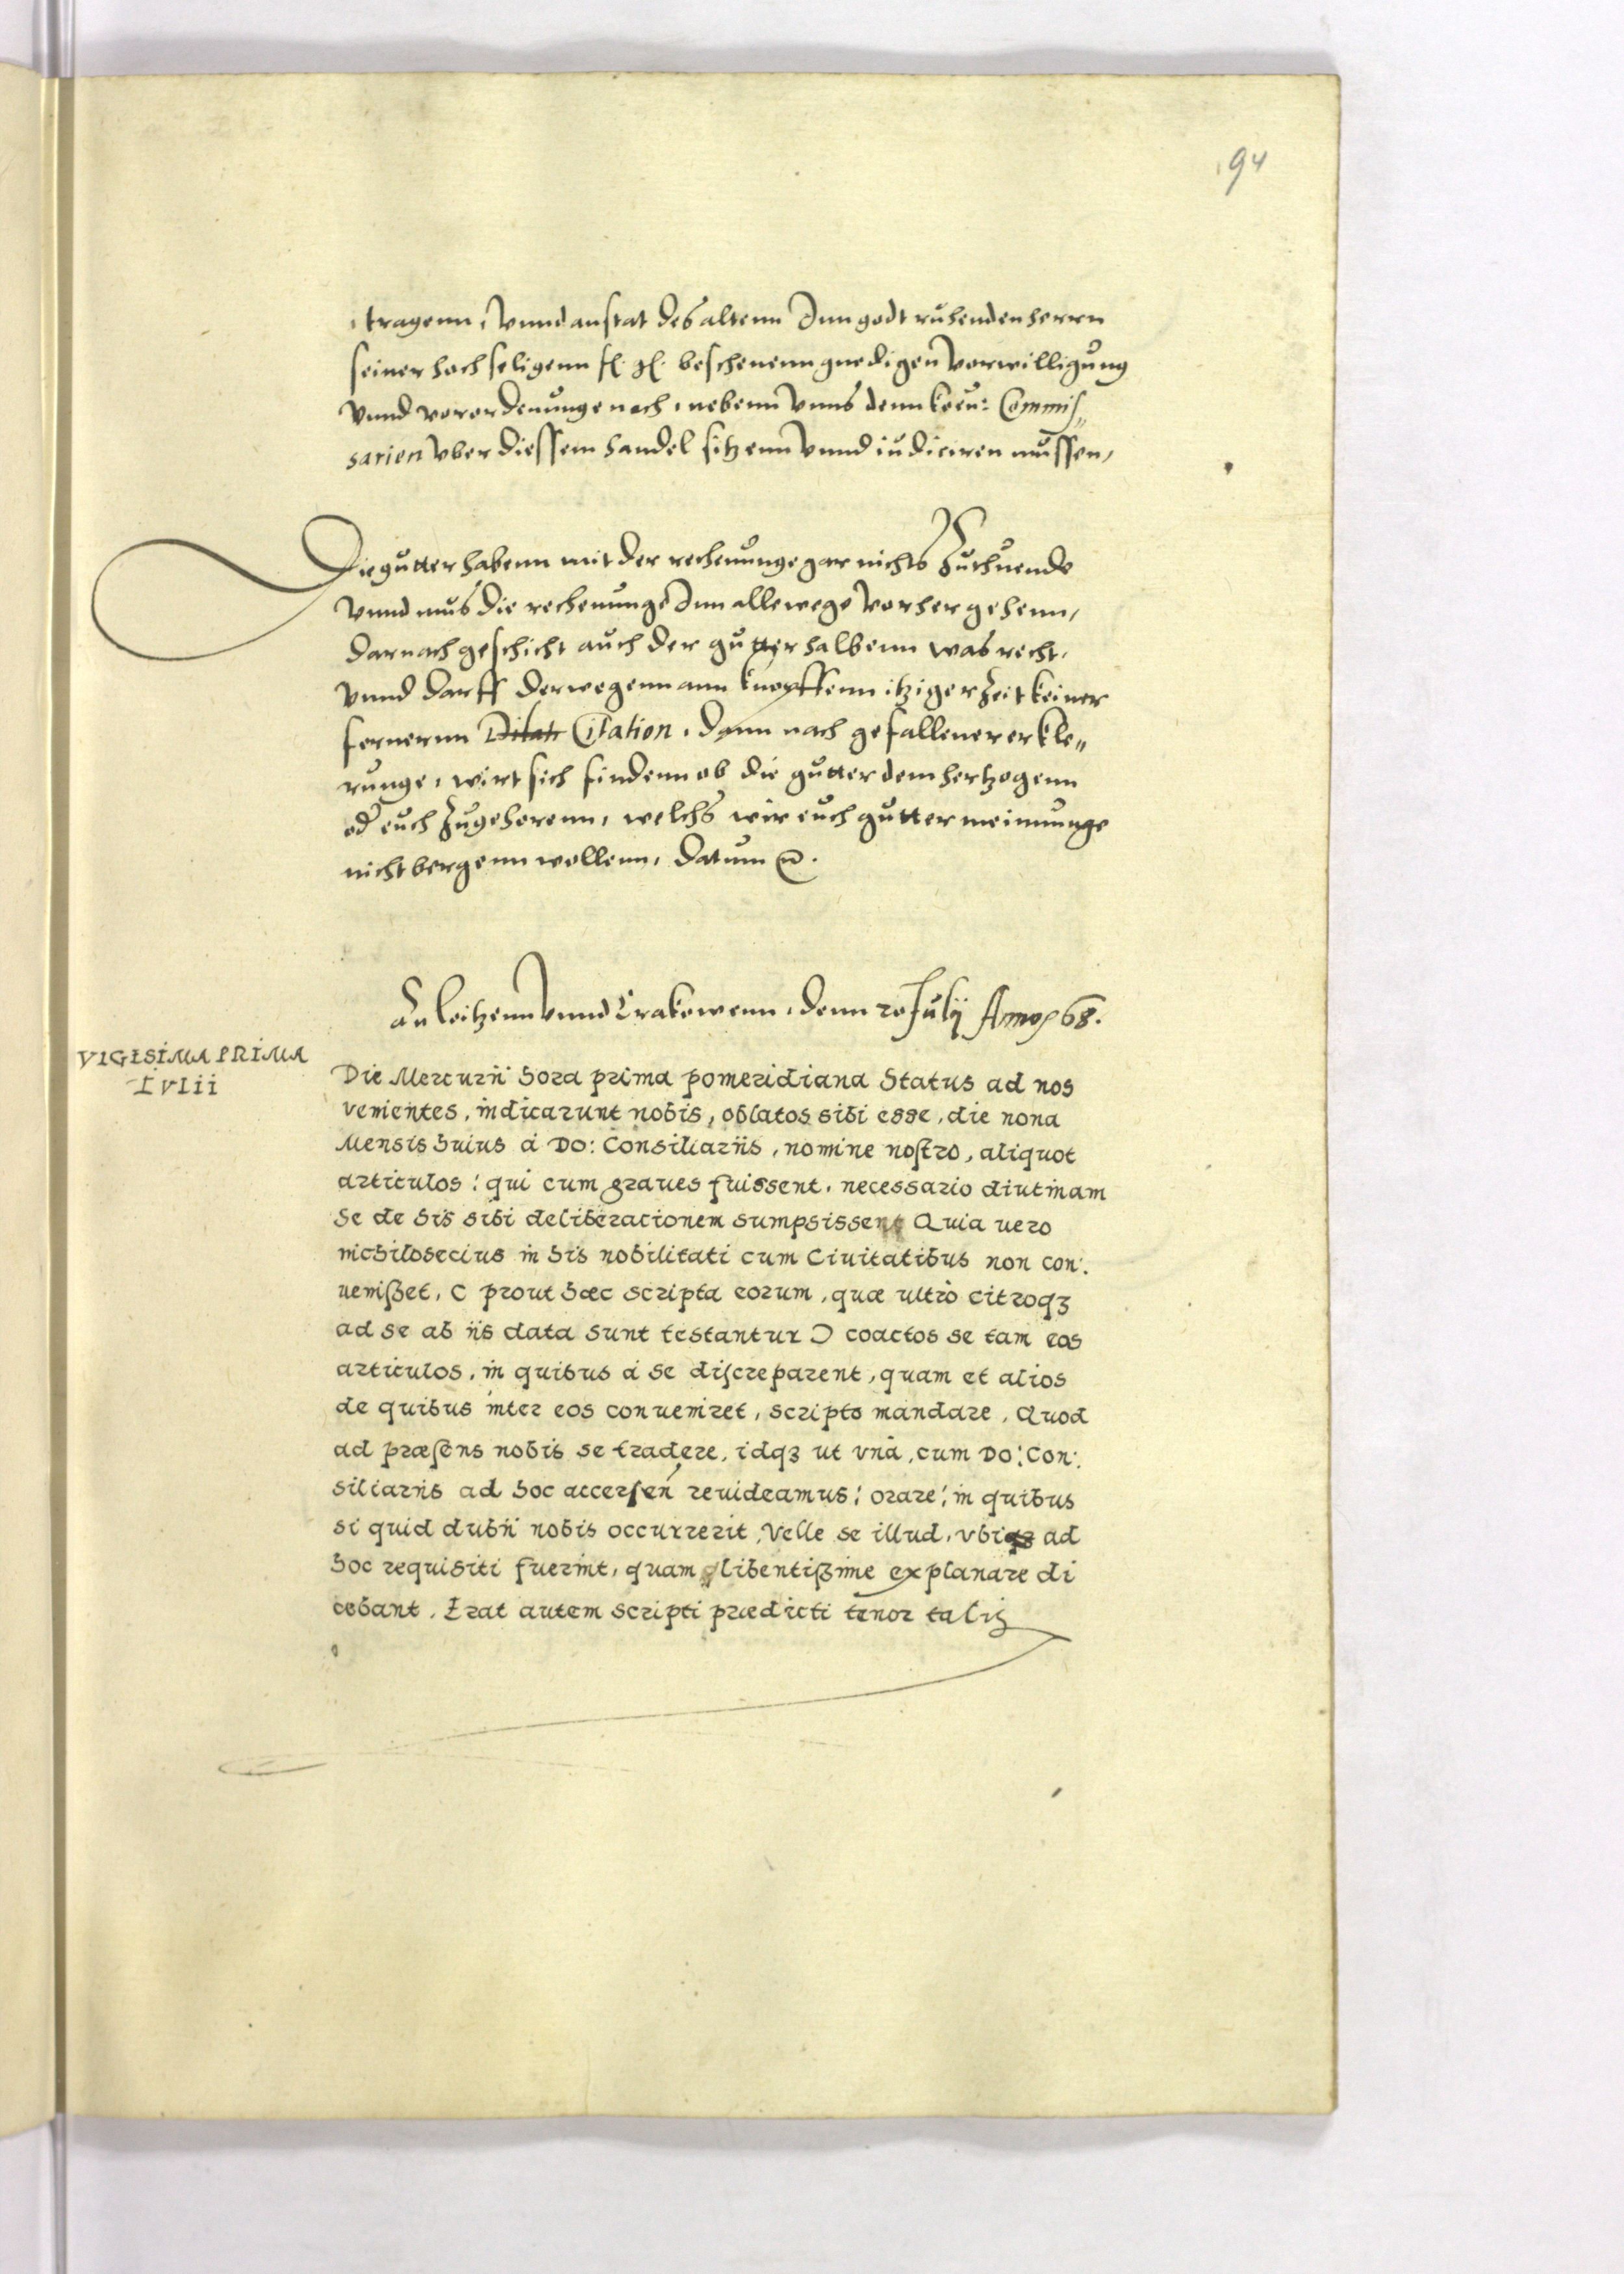 94
tragenn, vnnd anstat des altenn Inn godt ruhenden herrn
seiner hochseligenn fl. gl. beschenenn gnedigen vorwilligung
vnnd verordenunge nach, nebenn vnns denn koen: Commis„
sarien vber diessem handel sitzenn vnnd iudiciren mussen,
Die gutter habenn mit der rechenunge gar nichts zuthuende
vnnd mus die rechenunge Inn allewege vorher gehenn,
darnach geschicht auch der gutter halbenn was recht,
vnnd darff derwegenn ann knopffenn itziger zeit keiner
fernernn Dilati Citation, dann nach gefallener erkle„
runge, wirt sich findenn ob die gutter dem hertzogenn
od euch zugehorenn, welchs wir euch gutter meinunge
nicht bergenn wollenn, datum
An leitzenn vnnd Crakowenn, denn 20 Julij Anno 68.
VIGESIMA PRIMA
IVlii
Die Mercurii hora prima pomeridiana Status ad nos
venientes, indicarunt nobis, oblatos sibi esse, die nona
Mensis huius á Do: Consiliariis, nomine nostro, aliquot
articulos: qui cum graues fuissent, necessario diutinam
se de his sibi deliberationem sumpsissent Quia uero
nichilosecius in his nobilitati cum Ciuitatibus non con:
uenisset, ( prout hæc scripta eorum, quæ ultrò citroqꝫ
ad se ab iis data sunt testantur ) coactos se tam eos
articulos, in quibus á se discreparent, quam et alios
de quibus inter eos conueniret, scripto mandare, Quod
ad præsens nobis se tradere, idqꝫ ut vnà, cum Do: Con:
siliariis ad hoc accersen reuideamus: orare: in quibus
si quid dubii nobis occurrerit, Velle se illud, vbi ad
hoc requisiti fuerint, quam libentissime explanare di
cebant. Erat autem scripti prædicti tenor talis